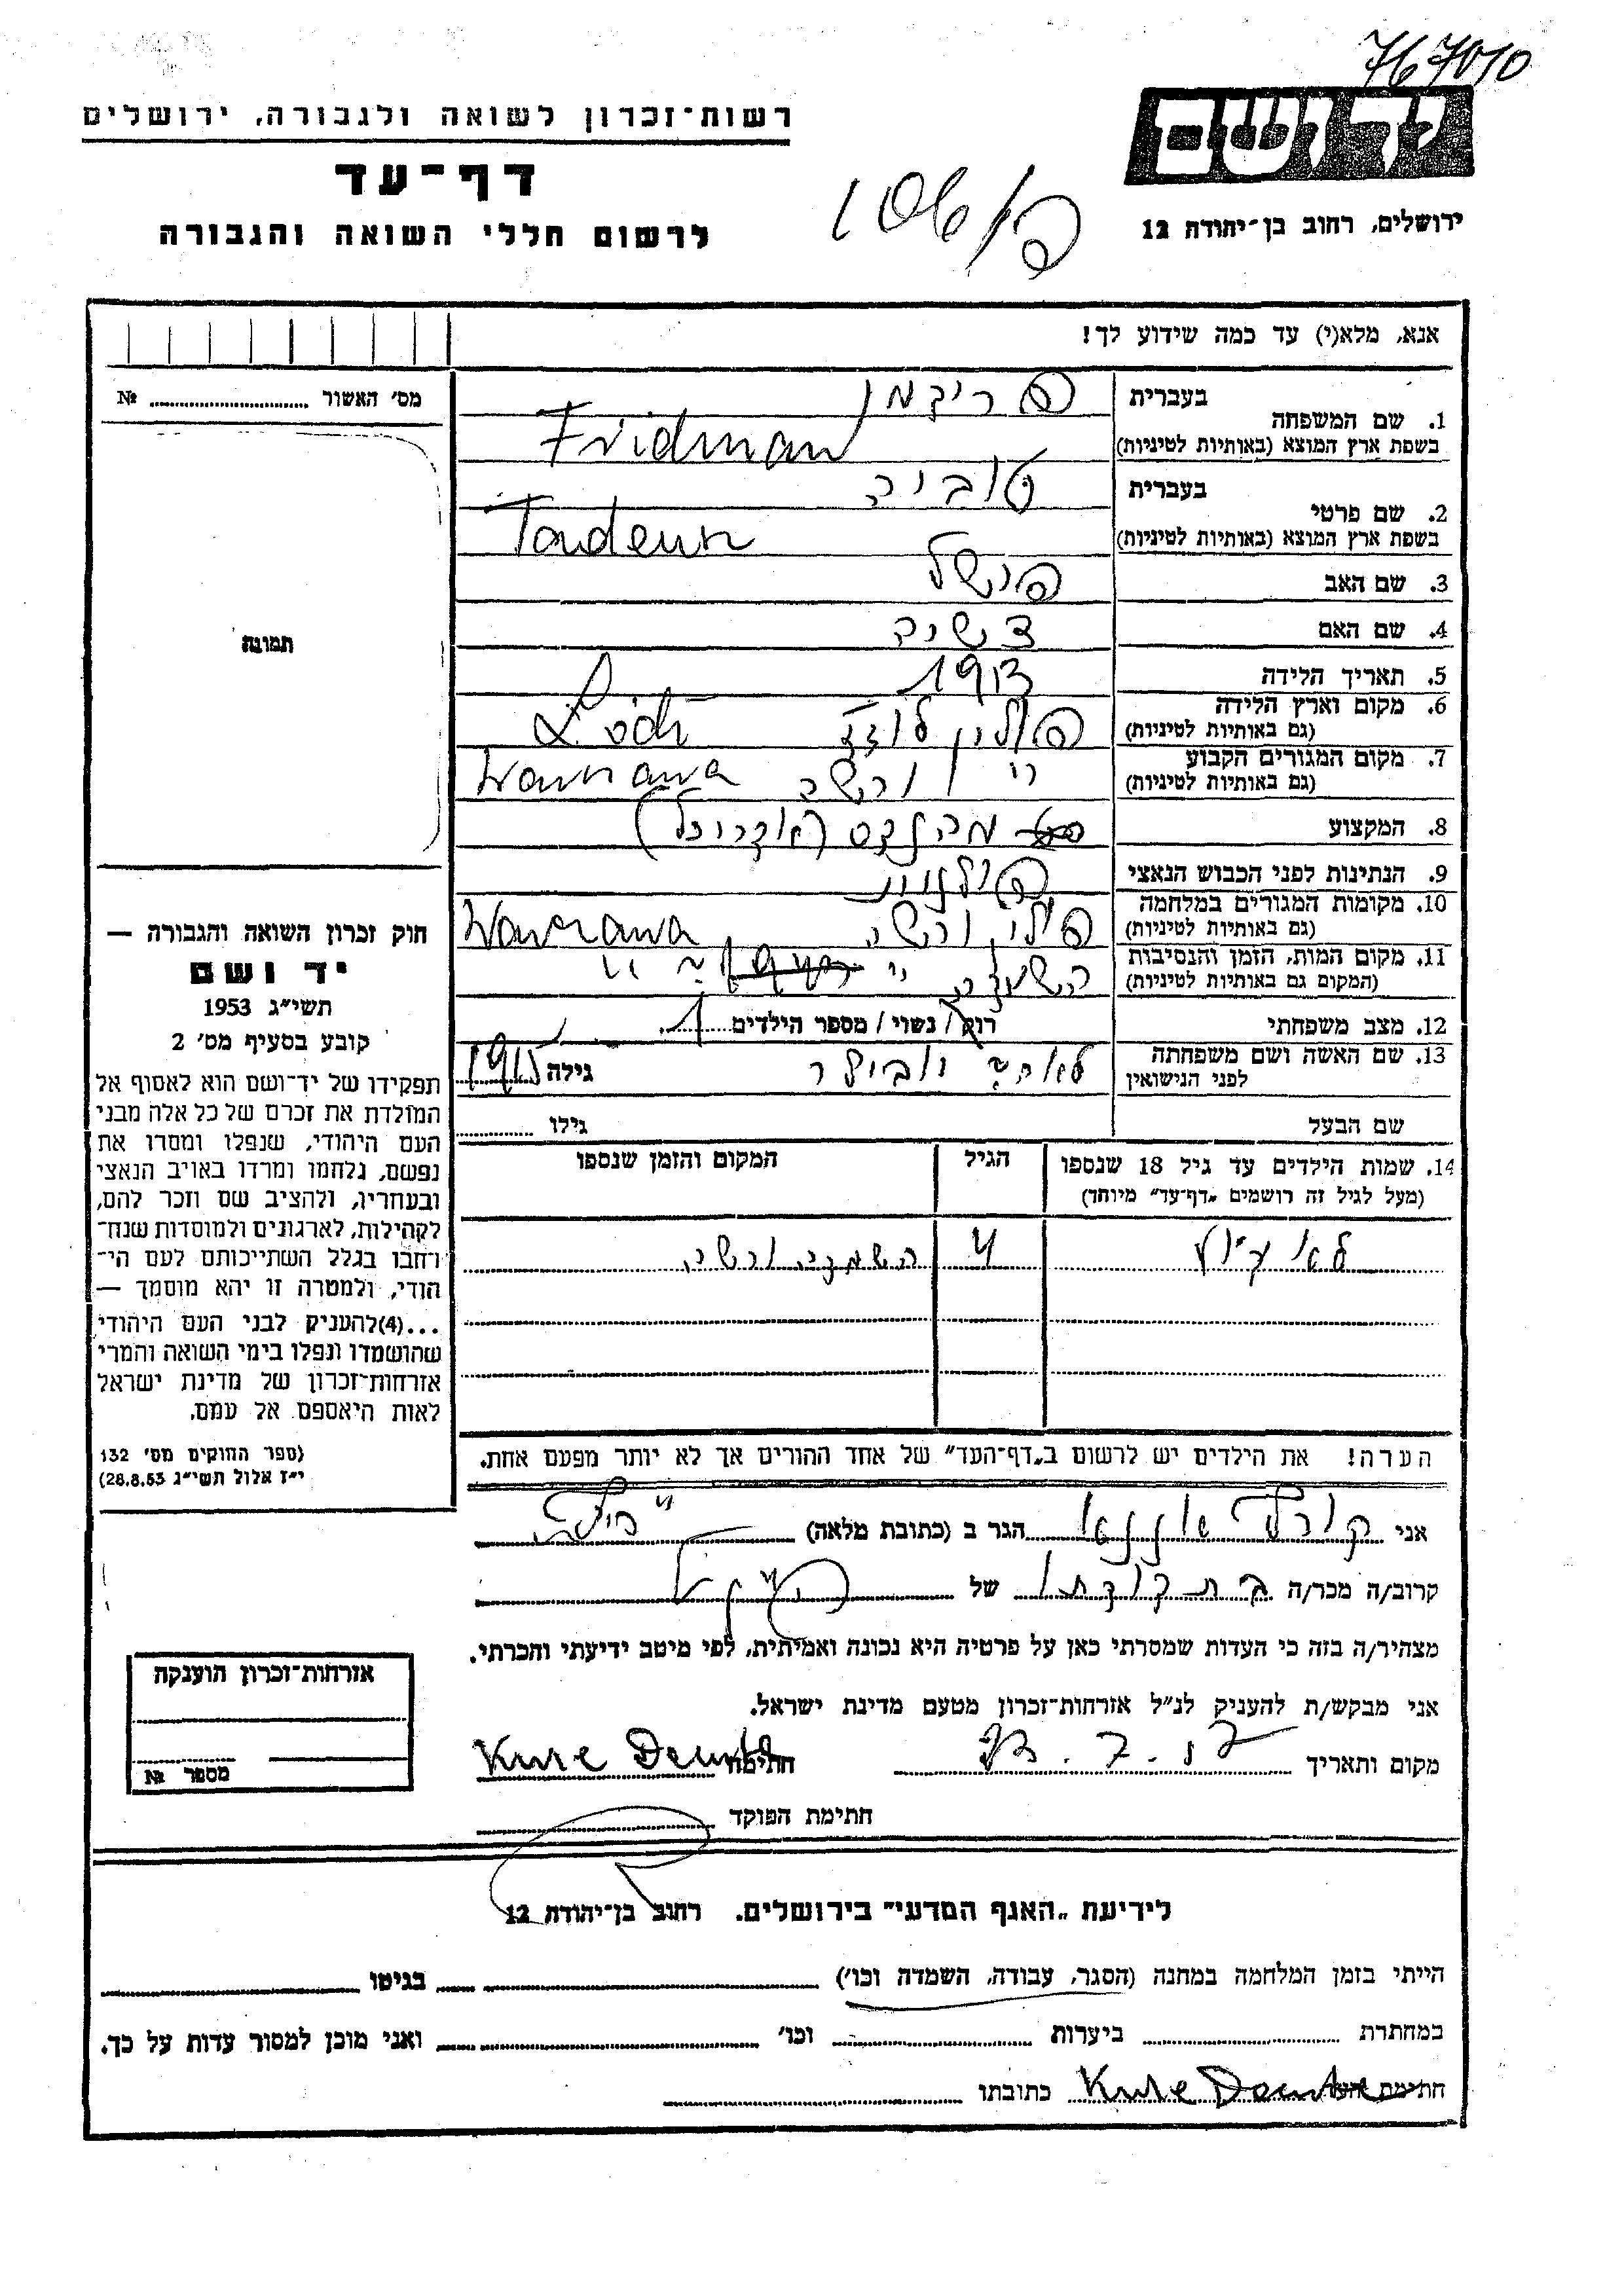 767010
רשות־זכרון לשואה ולגבורה, ירושלים
יד ושם
דף־עד
לרשום חללי השואה והגבורה
ירושלים, רחוב בן־יהודה 12
אנא, מלא(י) עד כמה שידוע לך!
מס׳ האשור № ........
תמונה
חוק זכרון השואה והגבורה —
יד ושם
תשי״ג 1953
קובע בסעיף מס׳ 2
תפקידו של יד־ושם הוא לאסוף אל
המולדת את זכרם של כל אלה מבני
העם היהודי, שנפלו ומסרו את
נפשם, נלחמו ומרדו באויב הנאצי
ובעוזריו, ולהציב שם וזכר להם,
לקהילות, לארגונים ולמוסדות שנח־
רחבו בגלל השתייכותם לעם הי־
הודי, ולמטרה זו יהא מוסמך —
...(4)להעניק לבני העם היהודי
שהושמדו ונפלו בימי השואה והמרי
אזרחות־זכרון של מדינת ישראל
לאות היאספם אל עמם.
(ספר החוקים מס׳ 132
י״ז אלול תשי״ג 28.8.53)
1. שם המשפחה
בעברית פרידמן
בשפת ארץ המוצא (באותיות לטיניות) Fridman
2. שם פרטי
בעברית טוביה
בשפת ארץ המוצא (באותיות לטיניות)
3. שם האב פישל
4. שם האם
5. תאריך הלידה 1913
6. מקום וארץ הלידה
(גם באותיות לטיניות) פולין לודז Łódź
7. מקום המגורים הקבוע
(גם באותיות לטיניות) " ורשה Warszawa
8. המקצוע מהנדס (אדריכל)
9. הנתינות לפני הכבוש הנאצי פולנית
10. מקומות המגורים במלחמה
(גם באותיות לטיניות) פולין ורשה Warszawa
11. מקום המות, הזמן והנסיבות
(המקום גם באותיות לטיניות) השמדה
12. מצב משפחתי רוק / נשוי / מספר הילדים 1
13. שם האשה ושם משפחתה
לפני הנישואין גילה 1915
שם הבעל גילו
14. שמות הילדים עד גיל 18 שנספו הגיל המקום והזמן שנספו
(מעל לגיל זה רושמים „דף־עד״ מיוחד)
4 השמדה ורשה
הערה! את הילדים יש לרשום ב„דף־העד״ של אחד ההורים אך לא יותר מפעם אחת.
אני הגר ב (כתובת מלאה)
קרוב/ה מכר/ה בת דודתו של
מצהיר/ה בזה כי העדות שמסרתי כאן על פרטיה היא נכונה ואמיתית, לפי מיטב ידיעתי והכרתי.
אני מבקש/ת להעניק לנ״ל אזרחות־זכרון מטעם מדינת ישראל.
מקום ותאריך חתימה
חתימת הפוקד
אזרחות־זכרון הוענקה
מספר №
לידיעת „האגף המדעי״ בירושלים. רחוב בן־יהודה 12
הייתי בזמן המלחמה במחנה (הסגר, עבודה, השמדה וכו׳) בגיטו
במחתרת ביערות וכו׳ ואני מוכן למסור עדות על כך.
חתימת כתובתו